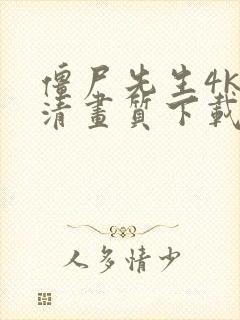 僵尸先生4k
清畫質下載
人多情少